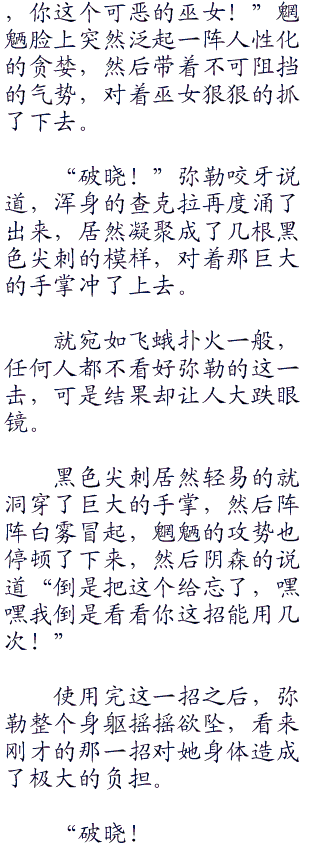 ，你这个可恶的巫女！”魍
魉脸上突然泛起一阵人性化
的贪婪，然后带着不可阻挡
的气势，对着巫女狠狠的抓
了下去。
“破晓！”弥勒咬牙说
道，浑身的查克拉再度涌了
出来，居然凝聚成了几根黑
色尖刺的模样，对着那巨大
的手掌冲了上去。
就宛如飞蛾扑火一般，
任何人都不看好弥勒的这一
击，可是结果却让人大跌眼
镜。
黑色尖刺居然轻易的就
洞穿了巨大的手掌，然后阵
阵白雾冒起，魍魉的攻势也
停顿了下来，然后阴森的说
道“倒是把这个给忘了，嘿
嘿我倒是看看你这招能用几
次！”
使用完这一招之后，弥
勒整个身躯摇摇欲坠，看来
刚才的那一招对她身体造成
了极大的负担。
“破晓！